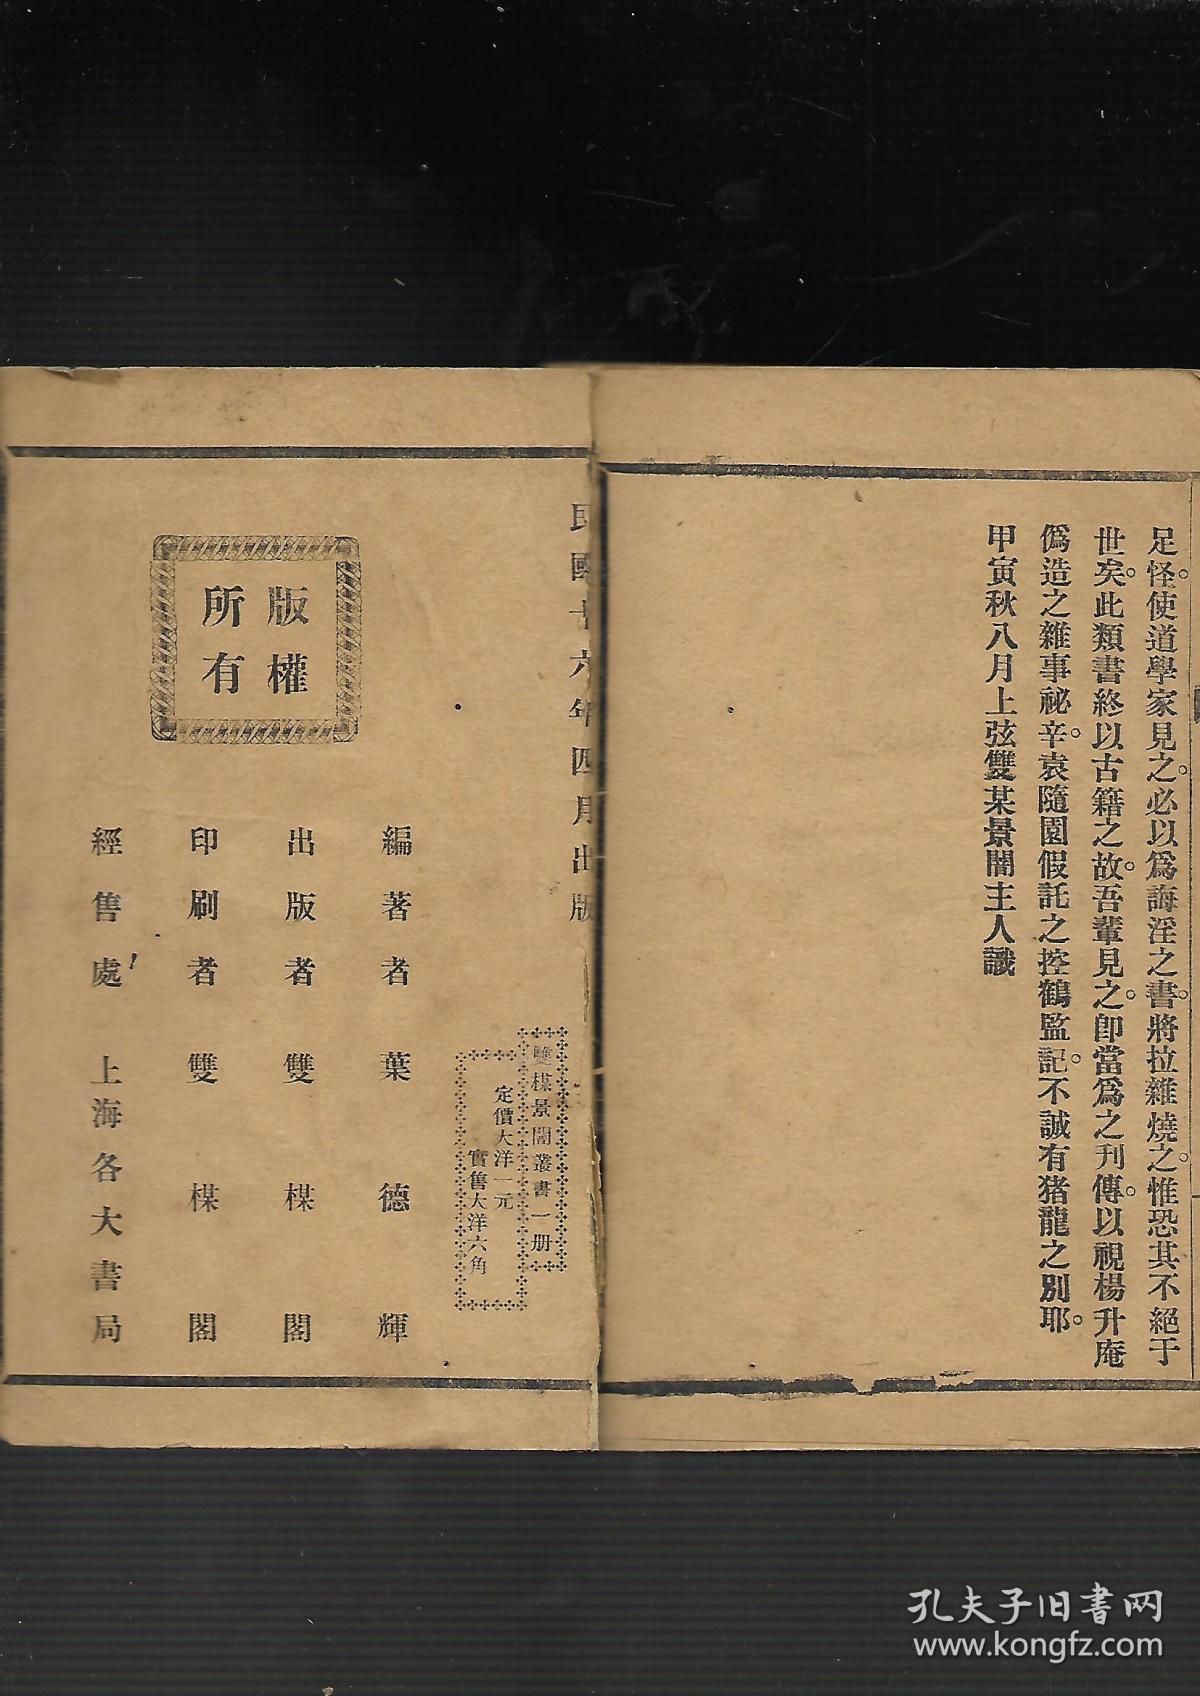 足怪。使道學家見之。必以爲誨淫之書。將拉雜燒之。惟恐其不絕于
世矣。此類書終以古籍之故。吾輩見之。卽當爲之刊傳。以視楊升庵
僞造之雜事祕辛。袁隨園假託之控鶴監記。不誠有猪龍之別耶。
甲寅秋八月上弦雙某景闇主人識
民國十六年四月出版
雙楳景闇叢書一册
定價大洋一元
實售大洋六角
版權
所有
編著者 葉德輝
出版者 雙楳閣
印刷者 雙楳閣
經售處 上海各大書局
孔夫子旧书网
www.kongfz.com